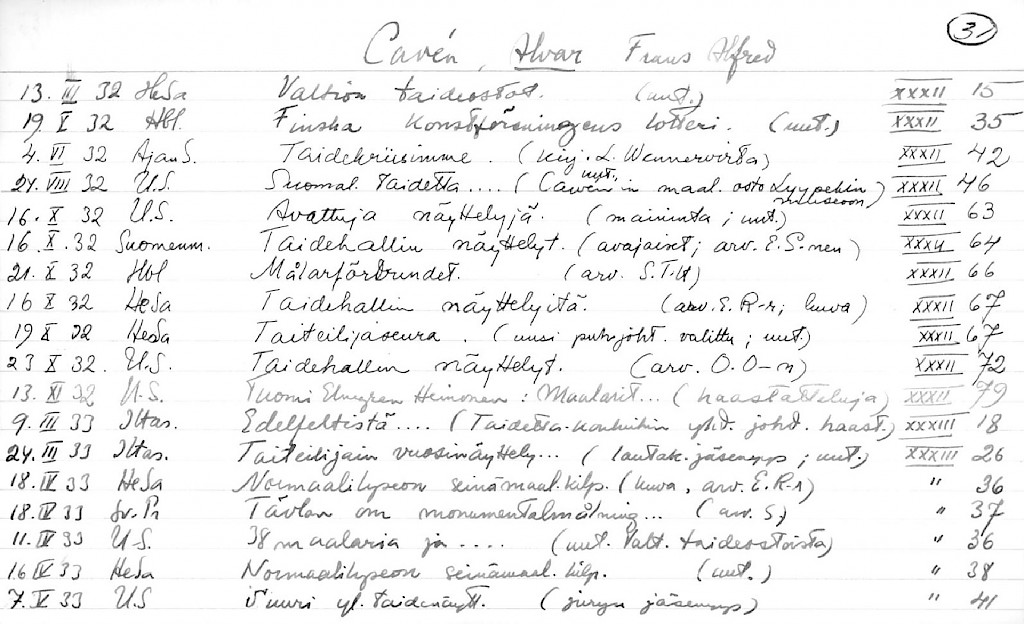 31
Cavén, Alvar Frans Alfred
13. III 32 HeSa Valtion taideostot. (uut.) XXXII 15
19. V 32 Hbl. Finska Konstföreningens lotteri. (uut.) XXXII 35
4. VI 32 AjanS. Taidekriisimme. (kirj. L. Wennervirta) XXXII 42
24. VIII 32 U.S. Suomal. taidetta.... (uut. Cawén'in maal. osto Lyypekin museoon) XXXII 46
16. X 32 U.S. Avattuja näyttelyjä. (maininta; uut.) XXXII 63
16. X. 32 Suomenm. Taidehallin näyttelyt. (avajaiset; arv. E.S-nen) XXXII 64
21. X 32 Hbl Målarförbundet. (arv. S.T-t) XXXII 66
16 X 32 HeSa Taidehallin näyttelyitä. (arv. E.R-r; kuva) XXXII 67
19 X 32 HeSa Taiteilijaseura. (uusi puh.joht. valittu; uut.) XXXII 67
23 X 32. U.S. Taidehallin näyttelyt. (arv. O.O-n) XXXII 72
13. XI 32 U.S. Tuomi Elmgren Heinonen: Maalarit... (haastatteluja) XXXII 79
9. III 33 Iltas. Edelfeltistä.... (Taidetta kouluihin yhd. joht. haast.) XXXIII 18
24. III 33 Iltas. Taiteilijain vuosinäyttely... (lautak. jäsenyys; uut.) XXXIII 26
18. IV 33 HeSa Normaalilyseon seinämaal. kilp. (kuva, arv. E.R-r) " 36
18. IV 33 Sv.Pr Tävlan om monumentalmålning... (arv. S;) " 37
11. IV 33 U.S. 38 maalaria ja .... (uut. Valt. taideostoista) " 36
16 IV 33 HeSa Normaalilyseon seinämaal. kilp. (uut.) " 38
7. V 33 U.S Suuri yl. taidenäytt. (juryn jäsenyys) " 41